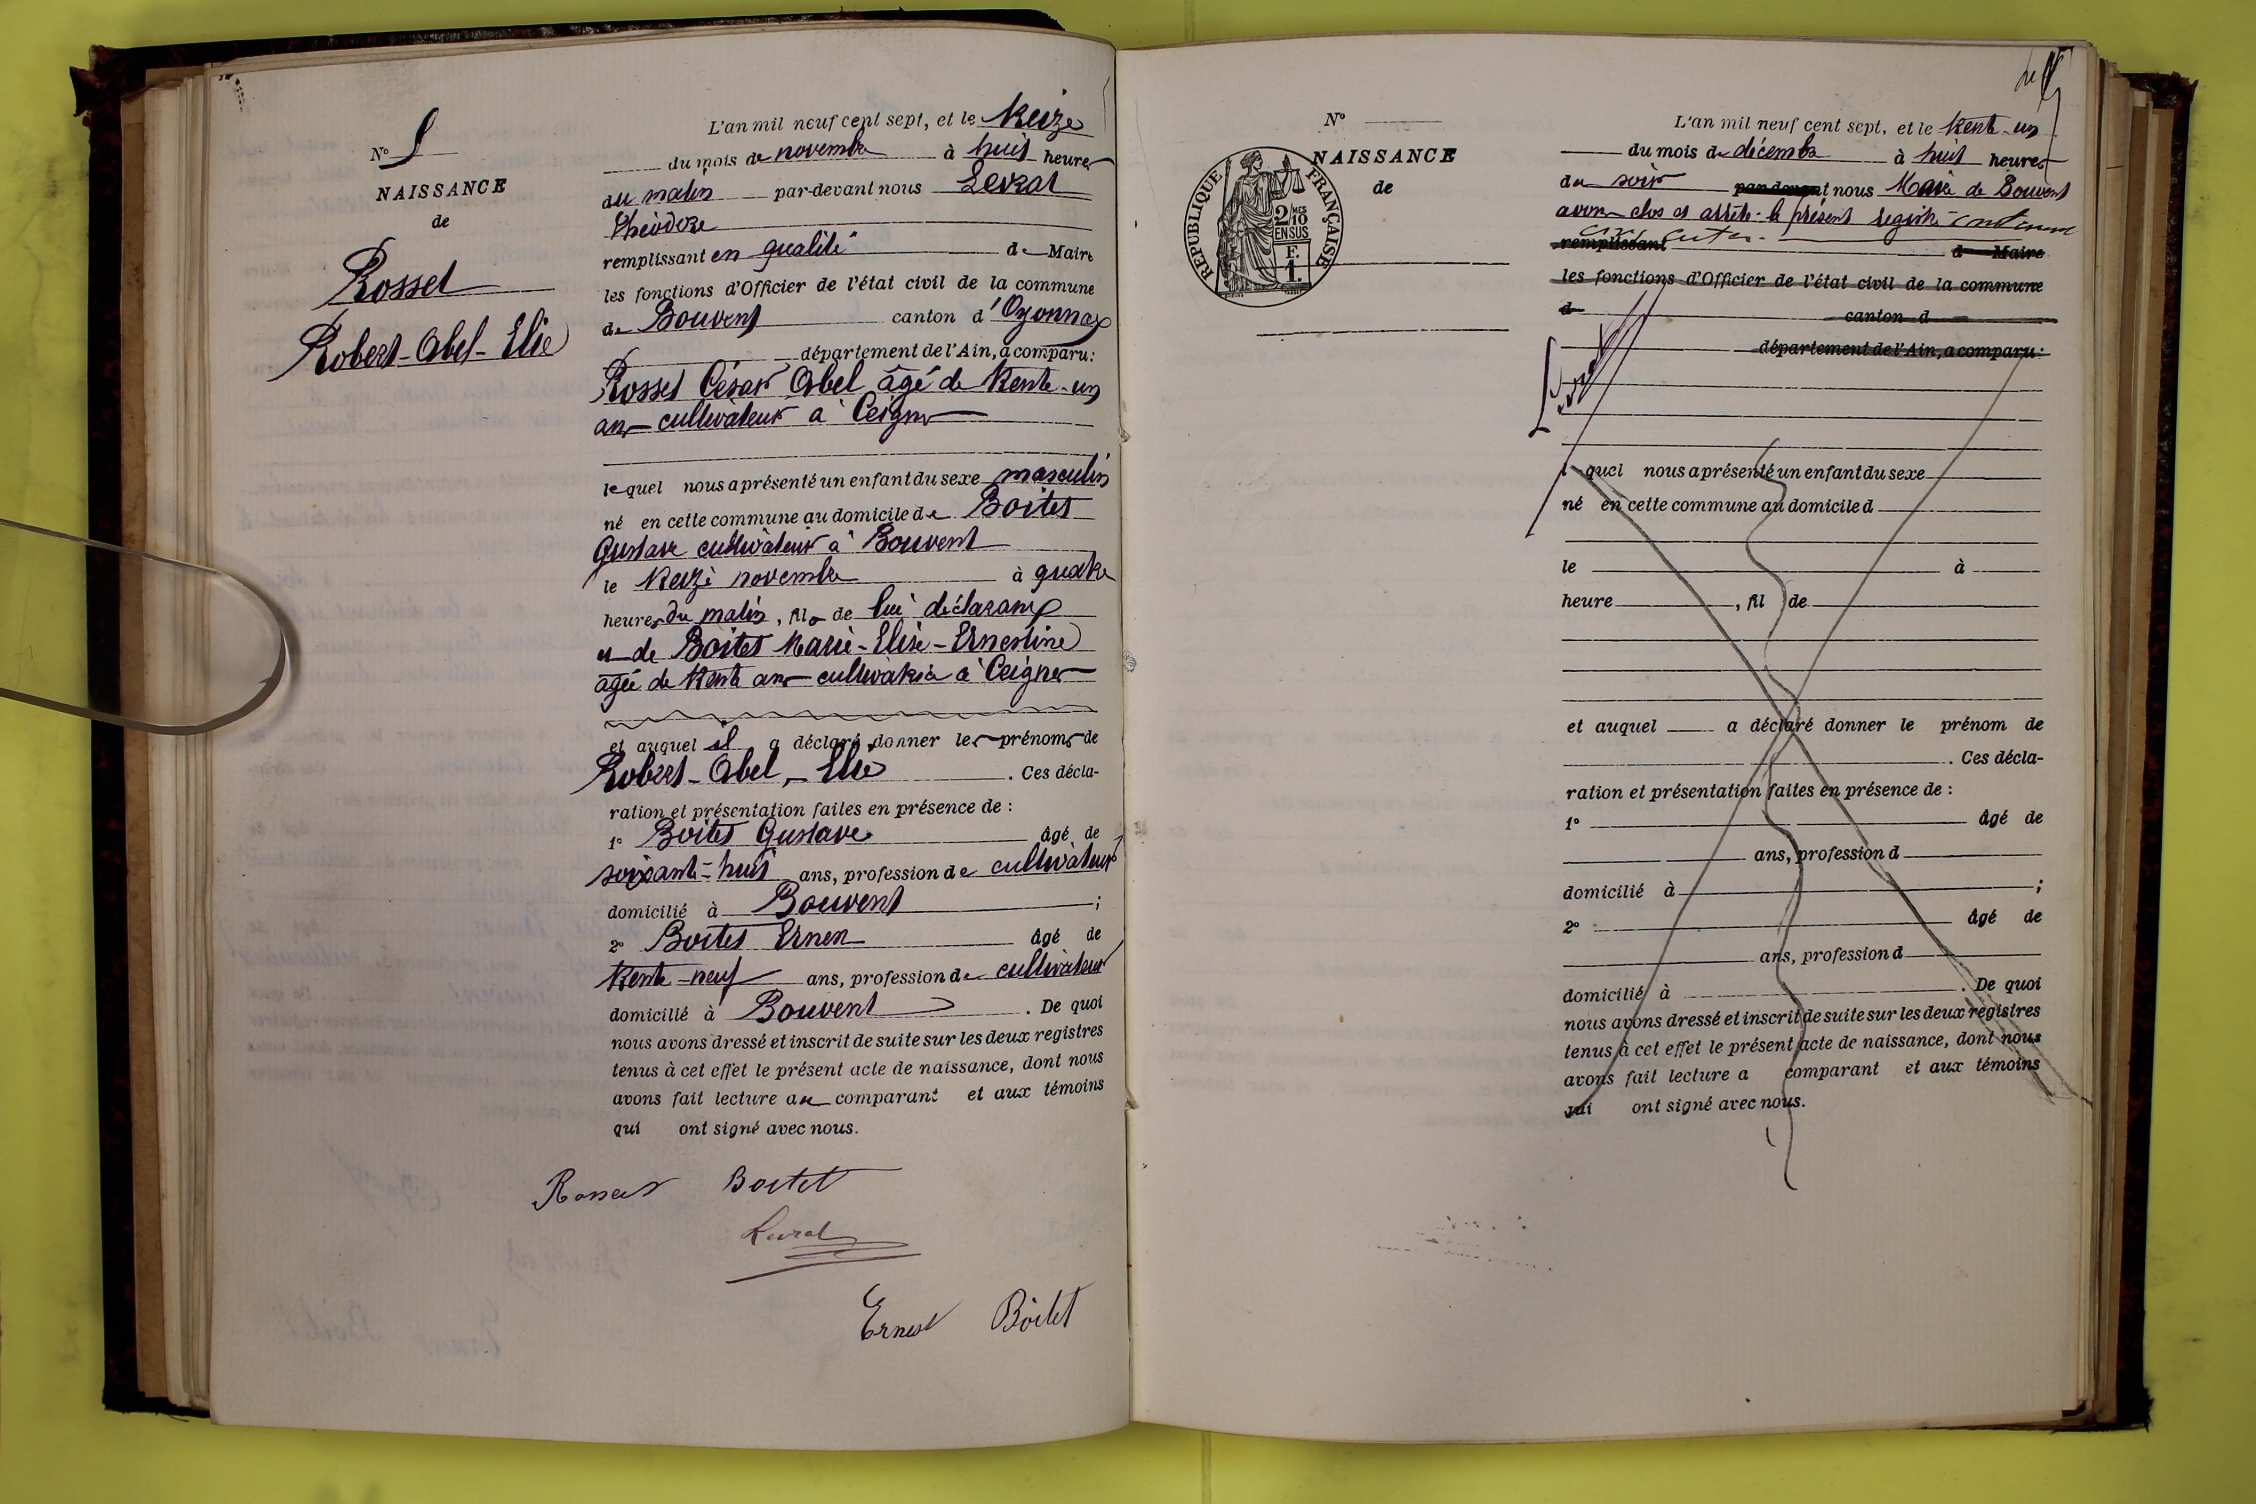 N° 5
NAISSANCE
de
Rosset
Robert-Abel-Elie
L'an mil neuf cent sept, et le treize
du mois de novembre à huit heures
du matin par-devant nous Levrat
Théodore
remplissant en qualité de Maire
les fonctions d'Officier de l'état civil de la commune
de Bouvent canton d'Oyonnax
département de l'Ain, a comparu:
Rosset César Abel âgé de trente-un
ans cultivateur à Ceignes
lequel nous a présenté un enfant du sexe masculin
né en cette commune au domicile de Boitet
Gustave cultivateur à Bouvent
le treize novembre à quatre
heures du matin, fils de lui déclarant
et de Boitet Marie-Elise-Ernestine
agée de trente ans cultivatrice à Ceignes
et auquel il a déclaré donner les prénoms de
Robert-Abel-Elie. Ces décla-
ration et présentation faites en présence de :
1° Boitet Gustave âgé de
soixante-huit ans, profession de cultivateur
domicilié à Bouvent ;
2° Boitet Ernest âgé de
trente-neuf ans, profession de cultivateur
domicilié à Bouvent. De quoi
nous avons dressé et inscrit de suite sur les deux registres
tenus à cet effet le présent acte de naissance, dont nous
avons fait lecture au comparant et aux témoins
qui ont signé avec nous.
Rosset Boitet
Levrat
Ernest Boitet
N°
NAISSANCE
de
REPUBLIQUE FRANÇAISE
2/10 MES
EN SUS
F.
1.
L'an mil neuf cent sept, et le trente-un
du mois de décembre à huit heures
du soir par-devant nous Maire de Bouvent
avons clos et arrêté le présent registre contenant
cinq actes.
remplissant de Maire
les fonctions d'Officier de l'état civil de la commune
d canton d
département de l'Ain, a comparu:
Levrat
l quel nous a présenté un enfant du sexe
né en cette commune au domicile d
le à
heure , fil de
et auquel a déclaré donner le prénom de
. Ces décla-
ration et présentation faites en présence de :
1° âgé de
ans, profession d
domicilié à ;
2° âgé de
ans, profession d
domicilié à . De quoi
nous avons dressé et inscrit de suite sur les deux registres
tenus à cet effet le présent acte de naissance, dont nous
avons fait lecture a comparant et aux témoins
qui ont signé avec nous.